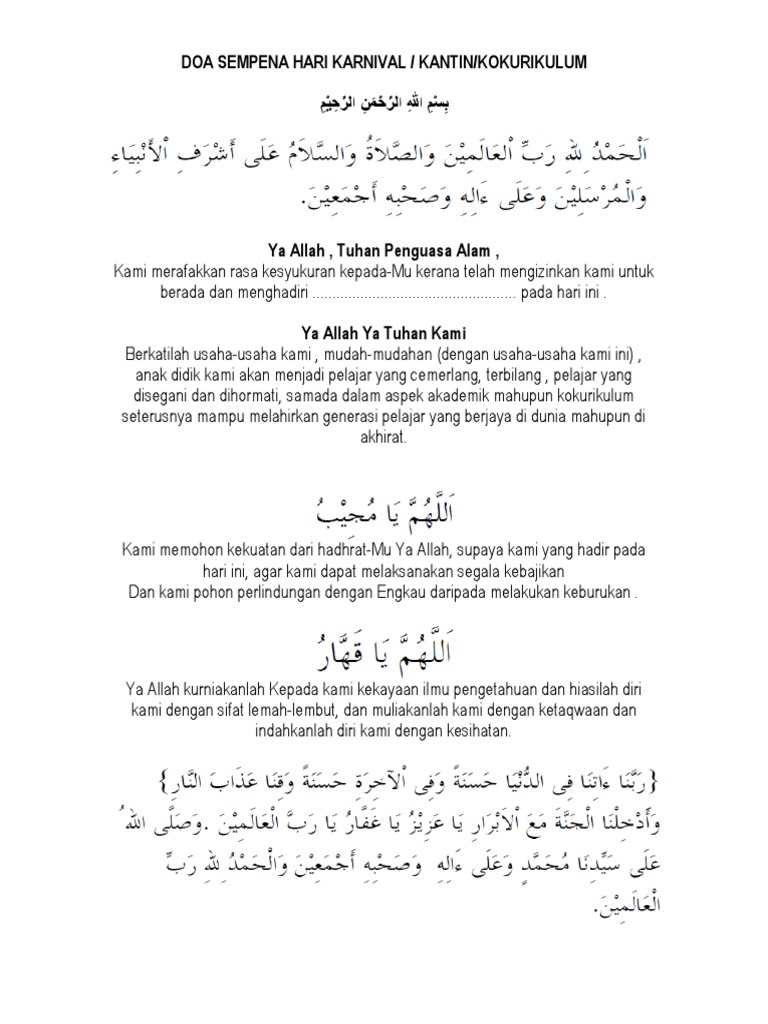 DOA SEMPENA HARI KARNIVAL / KANTIN/KOKURIKULUM
بِسْمِ اللهِ الرَّحْمَنِ الرَّحِيْمِ
اَلْحَمْدُ لِلهِ رَبِّ اْلعَالَمِيْنَ وَالصَّلاَةُ وَالسَّلاَمُ عَلَى أَشْرَفِ اْلأَنْبِيَاءِ
وَاْلمُرْسَلِيْنَ وَعَلَى ءَالِهِ وَصَحْبِهِ أَجْمَعِيْنَ.
Ya Allah , Tuhan Penguasa Alam ,
Kami merafakkan rasa kesyukuran kepada-Mu kerana telah mengizinkan kami untuk
berada dan menghadiri ................................................... pada hari ini .
Ya Allah Ya Tuhan Kami
Berkatilah usaha-usaha kami , mudah-mudahan (dengan usaha-usaha kami ini) ,
anak didik kami akan menjadi pelajar yang cemerlang, terbilang , pelajar yang
disegani dan dihormati, samada dalam aspek akademik mahupun kokurikulum
seterusnya mampu melahirkan generasi pelajar yang berjaya di dunia mahupun di
akhirat.
اَللَّهُمَّ يَا مُجِيْبُ
Kami memohon kekuatan dari hadhrat-Mu Ya Allah, supaya kami yang hadir pada
hari ini, agar kami dapat melaksanakan segala kebajikan
Dan kami pohon perlindungan dengan Engkau daripada melakukan keburukan .
اَللَّهُمَّ يَا قَهَّارُ
Ya Allah kurniakanlah Kepada kami kekayaan ilmu pengetahuan dan hiasilah diri
kami dengan sifat lemah-lembut, dan muliakanlah kami dengan ketaqwaan dan
indahkanlah diri kami dengan kesihatan.
{رَبَّنَا ءَاتِنَا فِى الدُّنْيَا حَسَنَةً وَفِى اْلآخِرَةِ حَسَنَةً وَقِنَا عَذَابَ النَّارِ}
وَأَدْخِلْنَا الْجَنَّةَ مَعَ اْلاَبْرَارِ يَا عَزِيْزُ يَا غَفَّارُ يَا رَبَّ الْعَالَمِيْنَ .وَصَلَّى اللهُ
عَلَى سَيِّدِنَا مُحَمَّدٍ وَعَلَى ءَالِهِ وَصَحْبِهِ أَجْمَعِيْنَ وَالْحَمْدُ لِلهِ رَبِّ
الْعَالَمِيْنَ.